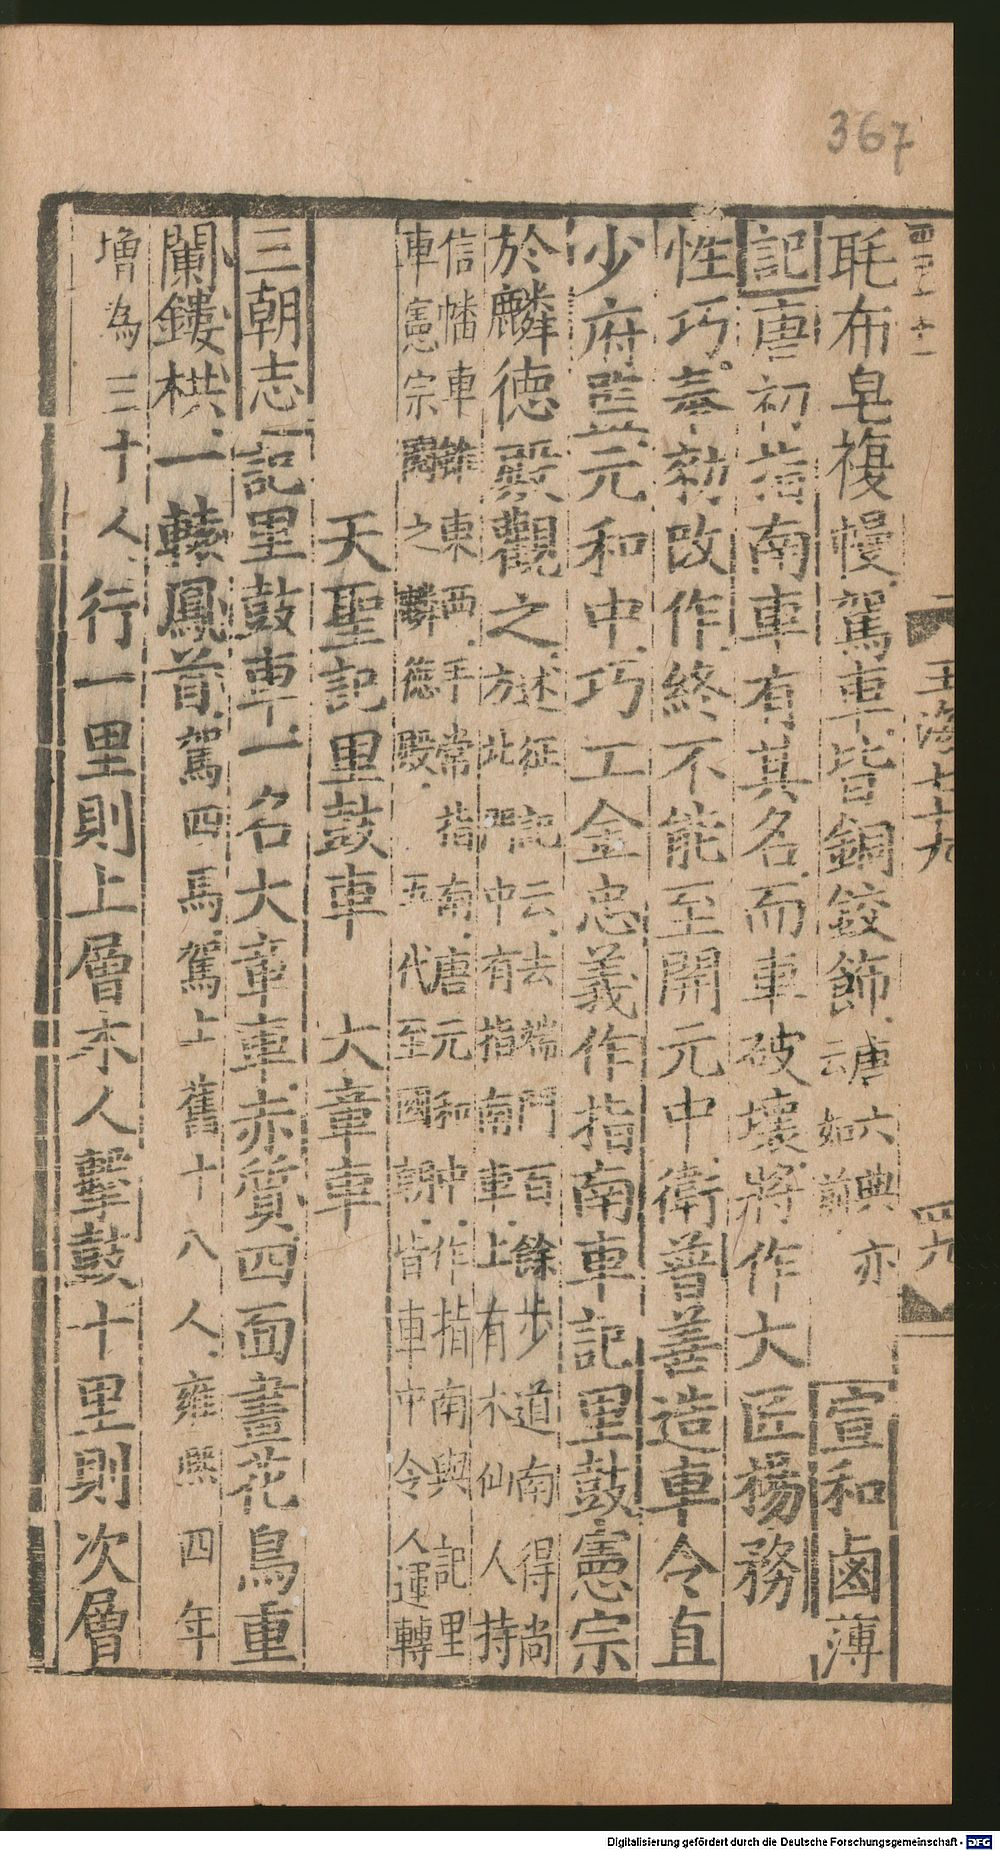 367
玉海七十九
四六
毦布皂複幔駕車皆銅鉸飾唐六典亦云如前宣和鹵薄
記唐初指南車有其名而車破壞將作大匠楊務
性巧奉勑改作終不能至開元中衛普善造車令直
少府監元和中巧工金忠義作指南車記里鼓憲宗
於麟德殿觀之述征記云去端門百餘步道南得尚方北門中有指南車上有木仙人持
信幡車東西手常指南唐元和中作指南與記里車憲宗閱之麟德殿五代至國朝皆車中令人運轉
天聖記里鼓車　大章車
三朝志記里鼓車一名大章車赤質四面畫花鳥重
闌鏤栱一轅鳳首駕四馬駕士舊十八人雍熙四年
增為三十人行一里則上層木人擊鼓十里則次層
Digitalisierung gefördert durch die Deutsche Forschungsgemeinschaft - DFG